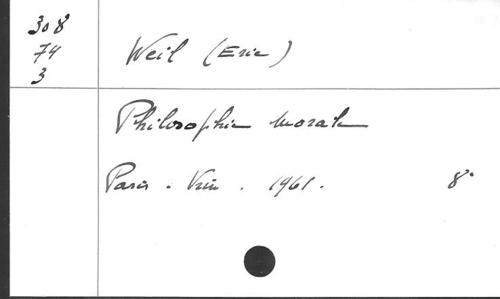 308
74
3
Weil (Eric)
Philosophie morale
Paris. Vrin. 1961. 8°